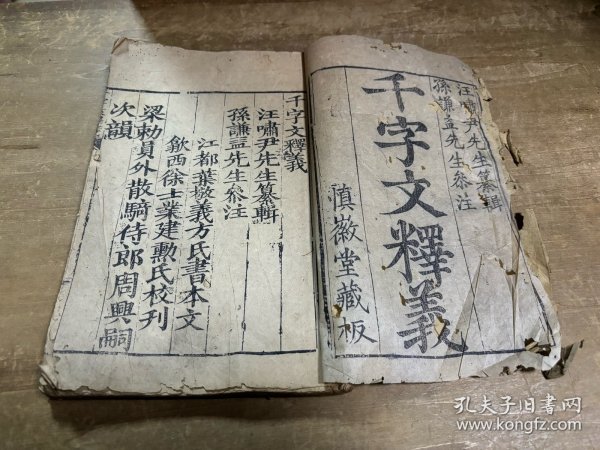 汪嘯尹先生纂輯
孫謙益先生叅注
千字文釋義
慎徽堂藏板
千字文釋義
汪嘯尹先生纂輯
孫謙益先生叅注
江都葉墩義方氏書本文
歙西徐士業建勲氏校刋
梁勅員外散騎侍郎周興嗣
次韻
孔夫子旧書网
www.kongfz.com